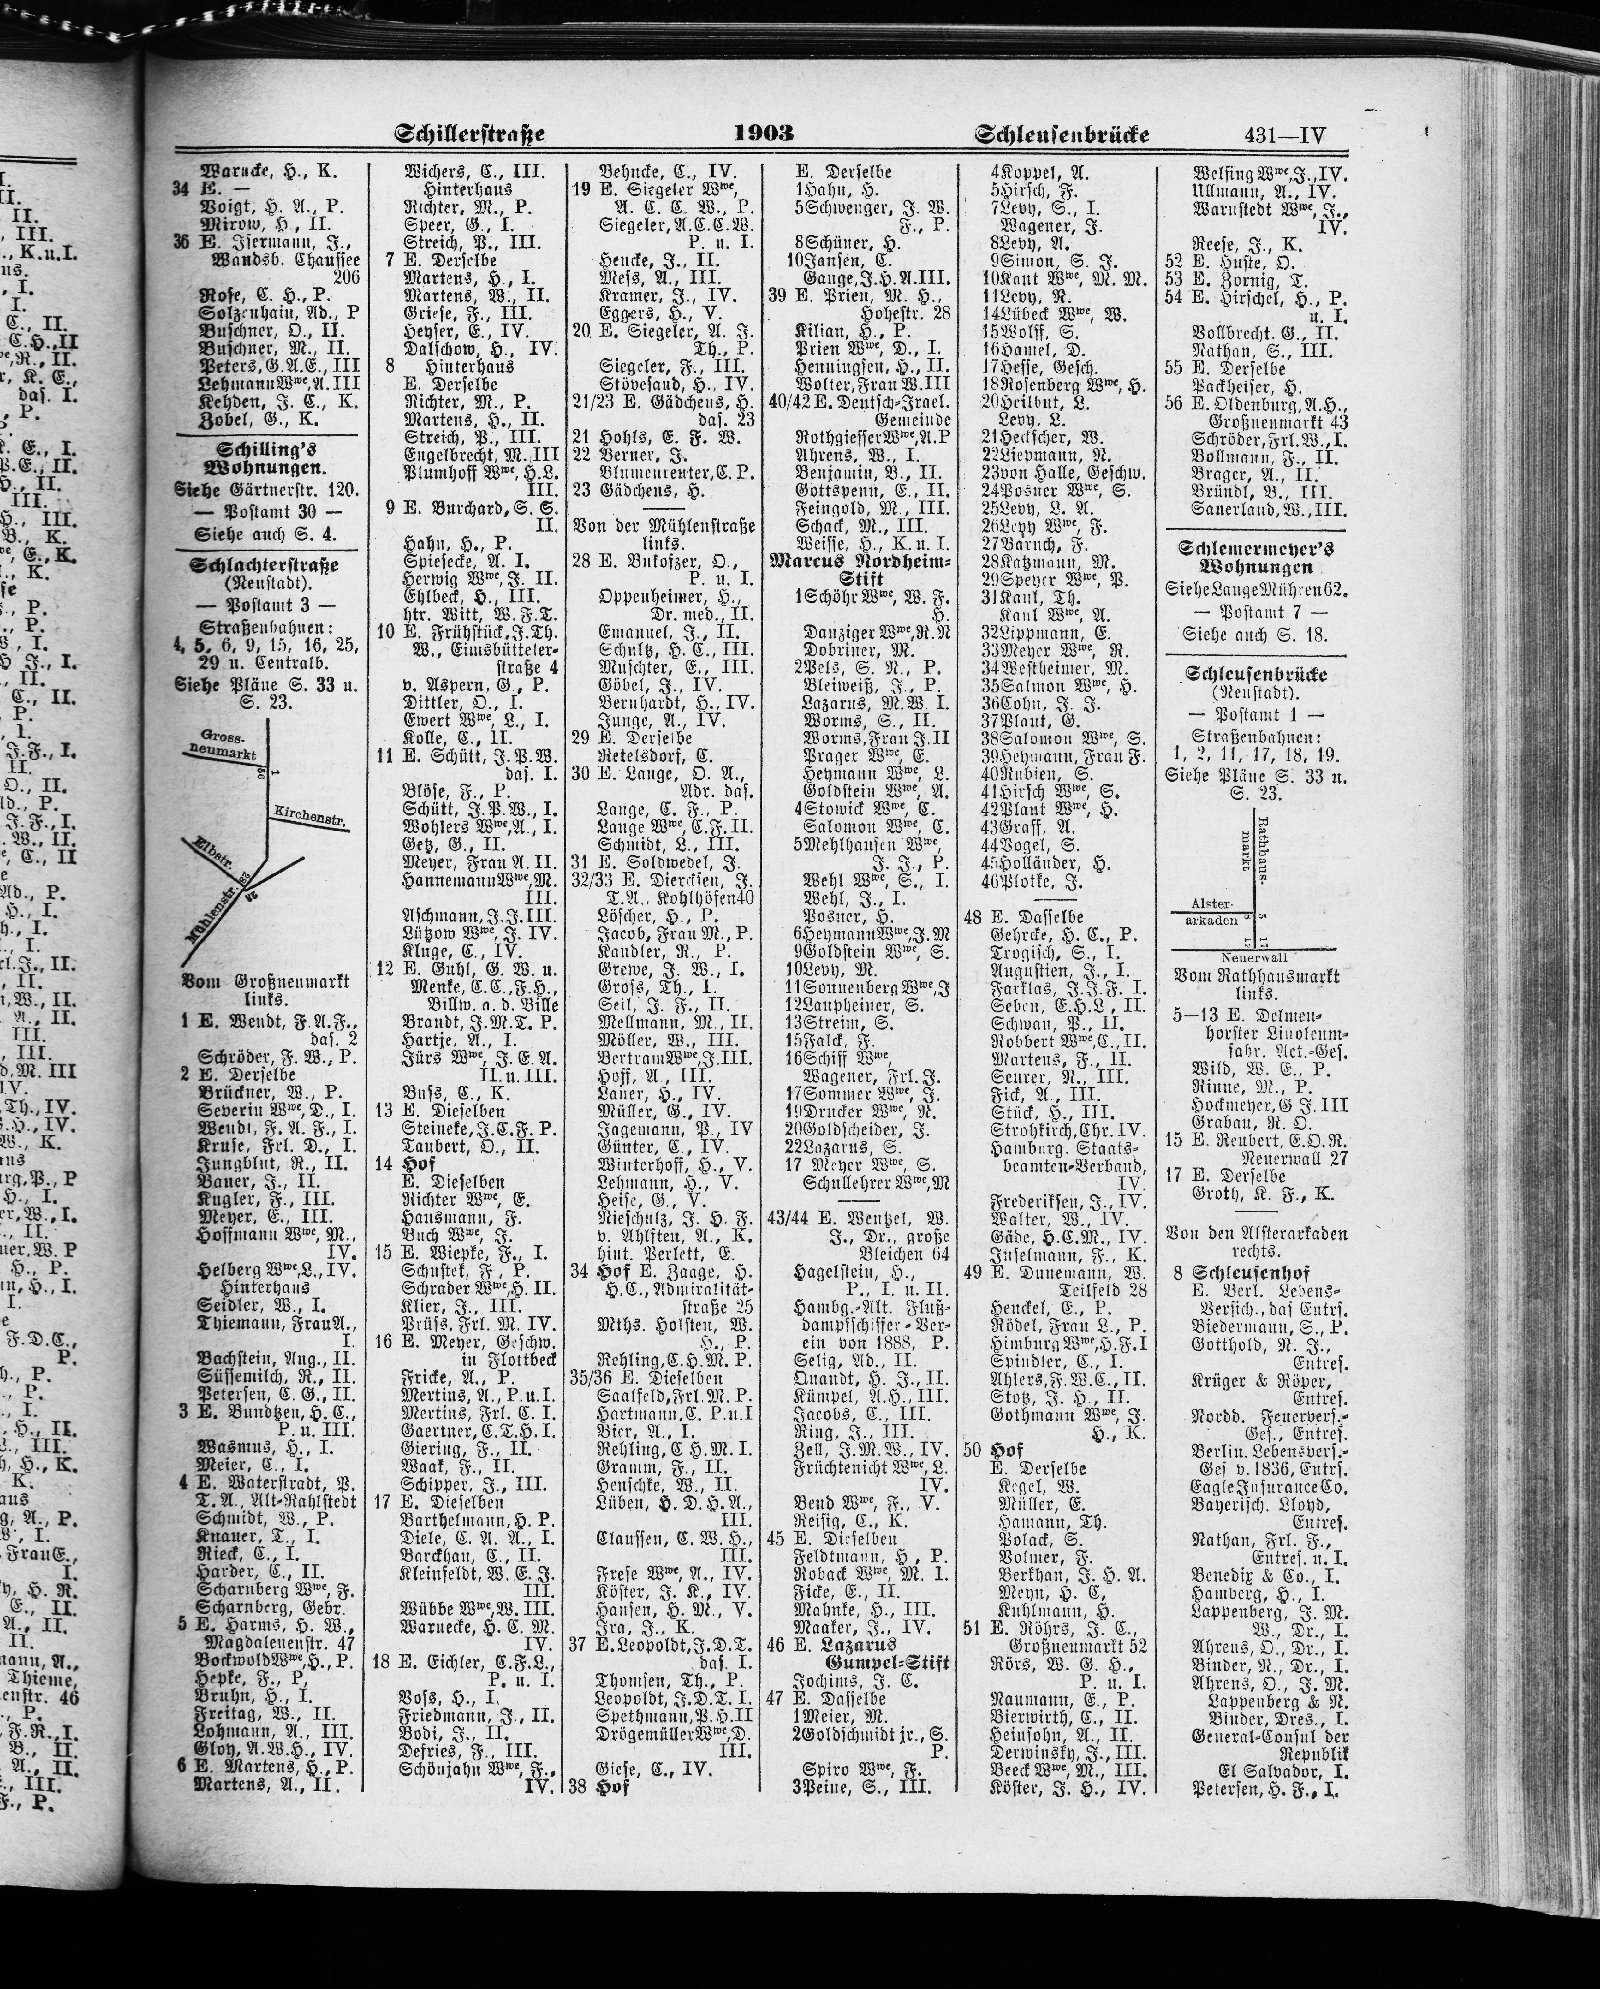 Schillerstraße
1903
Schleusenbrücke
431—IV
Warncke, H., K.
34 E. —
Voigt, H. A., P.
Mirow, H., II.
36 E. Isermann, J.,
Wandsb. Chaussee
206
Rose, C. H., P.
Solzenhain, Ad., P
Buschner, O., II.
Buschner, M., II.
Peters, G.A.E., III
Lehmann Wwe, A. III
Kehden, J. C., K.
Zobel, G., K.
Schilling's
Wohnungen.
Siehe Gärtnerstr. 120.
— Postamt 30 —
Siehe auch S. 4.
Schlachterstraße
(Neustadt).
— Postamt 3 —
Straßenbahnen:
4, 5, 6, 9, 15, 16, 25,
29 u. Centralb.
Siehe Pläne S. 33 u.
S. 23.
Gross-
neumarkt
Kirchenstr.
Elbstr.
Mühlenstr.
Vom Großneumarkt
links.
1 E. Wendt, F.A.F.,
das. 2
Schröder, F. W., P.
2 E. Derselbe
Brückner, W., P.
Severin Wwe, D., I.
Wendt, F. A. F., I.
Kruse, Frl. D., I.
Jungblut, R., II.
Bauer, J., II.
Kugler, F., III.
Meyer, E., III.
Hoffmann Wwe, M.,
IV.
Helberg Wwe, L., IV.
Hinterhaus
Seidler, W., I.
Thiemann, Frau A.,
I.
Bachstein, Aug., II.
Süssemilch, R., II.
Petersen, C. G., II.
3 E. Bundtzen, H. C.,
P. u. III.
Wasmus, H., I.
Meier, C., I.
4 E. Waterstradt, P.
T. A., Alt-Rahlstedt
Schmidt, W., P.
Knauer, T., I.
Rieck, C., I.
Harder, C., II.
Scharnberg Wwe, F.
Scharnberg, Gebr.
5 E. Harms, H. W.,
Magdalenenstr. 47
Bockwold Wwe, H., P.
Hepke, F., P,
Bruhn, H., I.
Freitag, W., II.
Lohmann, A., III.
Gloy, A.W.H., IV.
6 E. Martens, H., P.
Martens, A., II.
Wichers, C., III.
Hinterhaus
Richter, M., P.
Speer, G., I.
Streich, P., III.
7 E. Derselbe
Martens, H., I.
Martens, W., II.
Griese, F., III.
Heyser, E., IV.
Dalschow, H., IV.
8 Hinterhaus
E. Derselbe
Richter, M., P.
Martens, H., II.
Streich, P., III.
Engelbrecht, M. III
Plumhoff Wwe, H.L.
III.
9 E. Burchard, S. S.
II.
Hahn, H., P.
Spiesecke, A. I.
Herwig Wwe, J. II.
Ehlbeck, H., III.
htr. Witt, W.F.T.
10 E. Frühstück, J.Th.
W., Eimsbütteler-
straße 4
v. Aspern, G., P.
Dittler, O., I.
Ewert Wwe, L., I.
Kolle, C., II.
11 E. Schütt, J.P.W.
das. I.
Blöse, F., P.
Schütt, J.P.W., I.
Wohlers Wwe, A., I.
Getz, G., II.
Meyer, Frau A. II.
Hannemann Wwe, M.
III.
Aschmann, J.J. III.
Lützow Wwe, J. IV.
Kluge, C., IV.
12 E. Guhl, G. W. u.
Menke, C.C. F.H.,
Billw. a. d. Bille
Brandt, J.M.T. P.
Hartje, A., I.
Fürs Wwe, J.E.A.
II. u. III.
Buss, C., K.
13 E. Dieselben
Steineke, J.C.F. P.
Taubert, O., II.
14 Hof
E. Dieselben
Richter Wwe, E.
Hausmann, F.
Buch Wwe, J.
15 E. Wiepke, F., I.
Schustek, F., P.
Schrader Wwe, H. II.
Klier, J., III.
Prüss, Frl. M. IV.
16 E. Meyer, Geschw.
in Flottbeck
Fricke, A., P.
Mertins, A., P.u.I.
Mertins, Frl. C. I.
Gaertner, C.T.H. I.
Giering, F., II.
Waak, F., II.
Schipper, J., III.
17 E. Dieselben
Barthelmann, H. P.
Diele, C. A. A., I.
Barckhan, C., II.
Kleinfeldt, W. E. J.
III.
Wübbe Wwe, W. III.
Warnecke, H. C. M.
IV.
18 E. Eichler, C.F.L.,
P. u. I.
Voss, H., I.
Friedmann, J., II.
Bodi, J., II.
Defries, F., III.
Schönjahn Wwe, F.,
IV.
Behncke, C., IV.
19 E. Siegeler Wwe,
A. C. C. W., P.
Siegeler, A.C.C.W.
P. u. I.
Hencke, J., II.
Mess, A., III.
Kramer, J., IV.
Eggers, H., V.
20 E. Siegeler, A. J.
Th., P.
Siegeler, F., III.
Stövesand, H., IV.
21/23 E. Gädchens, H.
das. 23
21 Hohls, E. F. W.
22 Berner, J.
Blumenreuter, C. P.
23 Gädchens, H.
Von der Mühlenstraße
links.
28 E. Bukofzer, O.,
P. u. I.
Oppenheimer, H.,
Dr. med., II.
Emanuel, J., II.
Schultz, H. C., III.
Muschter, E., III.
Göbel, J., IV.
Bernhardt, H., IV.
Junge, A., IV.
29 E. Derselbe
Retelsdorf, C.
30 E. Lange, O. A.,
Adr. das.
Lange, C. F., P.
Lange Wwe, C.F. II.
Schmidt, L., III.
31 E. Soldwedel, J.
32/33 E. Diercksen, J.
T. A., Kohlhöfen 40
Löscher, H., P.
Jacob, Frau M., P.
Kandler, R., P.
Grewe, J. W., I.
Gross, Th., I.
Seil, J. F., II.
Mellmann, M., II.
Möller, W., III.
Bertram Wwe, J. III.
Hoff, A., III.
Lauer, H., IV.
Müller, G., IV.
Jagemann, P., IV
Günter, C., IV.
Winterhoff, H., V.
Lehmann, H., V.
Heise, G., V.
Nieschulz, J. H. F.
v. Ahlften, A., K.
hint. Perlett, E.
34 Hof E. Zaage, H.
H.C., Admiralität-
straße 25
Mths. Holsten, W.
H., P.
Rehling, C.H.M. P.
35/36 E. Dieselben
Saalfeld, Frl. M. P.
Hartmann, C. P.u.I
Bier, A., I.
Rehling, C.H.M. I.
Gramm, F., II.
Henschke, W., II.
Lüben, H. D. H. A.,
III.
Claussen, C. W. H.,
III.
Frese Wwe, A., IV.
Köster, J. K., IV.
Hansen, H. M., V.
Jra, J., K.
37 E. Leopoldt, J.D.T.
das. I.
Thomsen, Th., P.
Leopoldt, J.D.T. I.
Spethmann, P. H. II
Drögemüller Wwe, D.
III.
Giese, C., IV.
38 Hof
E. Derselbe
1 Hahn, H.
5 Schwenger, J. W.
F., P.
8 Schüner, H.
10 Jansen, C.
Gange, J.H.A. III.
39 E. Prien, M. H.,
Hohestr. 28
Kilian, H., P.
Prien Wwe, D., I.
Henningsen, H., II.
Wolter, Frau W. III
40/42 E. Deutsch-Israel.
Gemeinde
Rothgiesser Wwe, A.P
Ahrens, W., I.
Benjamin, B., II.
Gottspenn, E., II.
Feingold, M., III.
Schack, M., III.
Weisse, H., K. u. I.
Marcus Nordheim-
Stift
1 Schöhr Wwe, W. F.
H.
Danziger Wwe, R.N
Dobriner, M.
2 Pels, S. N., P.
Bleiweiß, J., P.
Lazarus, M.W. I.
Worms, S., II.
Worms, Frau J. II
Prager Wwe, E.
Heymann Wwe, L.
Goldstein Wwe, A.
4 Stowick Wwe, C.
Salomon Wwe, C.
5 Mehlhausen Wwe,
J. J., P.
Wehl Wwe, S., I.
Wehl, J., I.
Posner, H.
6 Heymann Wwe, J.M
9 Goldstein Wwe, S.
10 Levy, M.
11 Sonnenberg Wwe, J
12 Laupheiner, S.
13 Streim, S.
15 Falck, F.
16 Schiff Wwe,
Wagener, Frl. J.
17 Sommer Wwe, J.
19 Drucker Wwe, R.
20 Goldscheider, J.
22 Lazarus, S.
17 Meyer Wwe, S.
Schullehrer Wwe, M
43/44 E. Wentzel, W.
J., Dr., große
Bleichen 64
Hagelstein, H.,
P., I. u. II.
Hambg.-Alt. Fluß-
dampfschiffer-Ver-
ein von 1888, P.
Selig, Ad., II.
Quandt, H. J., II.
Kümpel, A.H., III.
Jacobs, C., III.
Ring, J., III.
Zell, J.M.W., IV.
Früchtenicht Wwe, L.
IV.
Bend Wwe, F., V.
Reisig, C., K.
45 E. Dieselben
Feldtmann, H., P.
Roback Wwe, M. I.
Ficke, E., II.
Mahnke, H., III.
Maaker, J., IV.
46 E. Lazarus
Gumpel-Stift
Jochims, J. C.
47 E. Dasselbe
1 Meier, M.
2 Goldschmidt jr., S.
P.
Spiro Wwe, F.
3 Peine, S., III.
4 Koppel, A.
5 Hirsch, F.
7 Levy, S., I.
Wagener, J.
8 Levy, A.
9 Simon, S. J.
10 Kant Wwe, M. M.
11 Levy, N.
14 Lübeck Wwe, W.
15 Wolff, S.
16 Hamel, D.
17 Hesse, Gesch.
18 Rosenberg Wwe, H.
20 Heilbut, L.
Levy, L.
21 Heckscher, W.
22 Liepmann, N.
23 von Halle, Geschw.
24 Posner Wwe, S.
25 Levy, L. A.
26 Levy Wwe, F.
27 Baruch, F.
28 Katzmann, M.
29 Speyer Wwe, P.
31 Kaul, Th.
Kaul Wwe, A.
32 Lippmann, E.
33 Meyer Wwe, R.
34 Westheimer, M.
35 Salmon Wwe, H.
36 Cohn, J. J.
37 Plaut, G.
38 Salomon Wwe, S.
39 Heymann, Frau F.
40 Rubien, S.
41 Hirsch Wwe, S.
42 Plaut Wwe, H.
43 Graff, A.
44 Vogel, S.
45 Holländer, H.
46 Plotke, J.
48 E. Dasselbe
Gehrcke, H. C., P.
Trogisch, S., I.
Augustien, J., I.
Farklas, J.J.F. I.
Seben, C.H.L., II.
Schwan, P., II.
Robbert Wwe, C., II.
Martens, F., II.
Seurer, N., III.
Fick, A., III.
Stück, H., III.
Strohkirch, Chr. IV.
Hamburg. Staats-
beamten-Verband,
IV.
Frederiksen, J., IV.
Walter, W., IV.
Gäde, H.C.M., IV.
Inselmann, F., K.
49 E. Dunemann, W.
Teilfeld 28
Henckel, E., P.
Rödel, Frau L., P.
Himburg Wwe, H.F.I
Spindler, C., I.
Ahlers, F.W.C., II.
Stotz, J. H., II.
Gothmann Wwe, J.
H., K.
50 Hof
E. Derselbe
Kegel, W.
Müller, E.
Hamann, Th.
Polack, S.
Volmer, F.
Berkhan, J. H. A.
Meyn, H. C,
Kuhlmann, H.
51 E. Röhrs, J. C.,
Großneumarkt 52
Rörs, W. G. H.,
P. u. I.
Naumann, E., P.
Bierwirth, C., II.
Heinsohn, A., II.
Derwinsky, J., III.
Beeck Wwe, M., III.
Köster, J. H., IV.
Welsing Wwe, J., IV.
Ullmann, A., IV.
Warnstedt Wwe, J.,
IV.
Reese, J., K.
52 E. Huste, O.
53 E. Zornig, T.
54 E. Hirschel, H., P.
u. I.
Vollbrecht. G., II.
Nathan, S., III.
55 E. Derselbe
Packheiser, H.
56 E. Oldenburg, A.H.,
Großneumarkt 43
Schröder, Frl. W., I.
Bollmann, F., II.
Brager, A., II.
Bründl, B., III.
Sauerland, W., III.
Schlemermeyer's
Wohnungen
Siehe Lange Mühren 62.
— Postamt 7 —
Siehe auch S. 18.
Schleusenbrücke
(Neustadt).
— Postamt 1 —
Straßenbahnen:
1, 2, 11, 17, 18, 19.
Siehe Pläne S. 33 u.
S. 23.
Rathhaus-
markt
Alster-
arkaden
Neuerwall
Vom Rathhausmarkt
links.
5—13 E. Delmen-
horster Linoleum-
fabr. Act.-Ges.
Wild, W. E., P.
Rinne, M., P.
Hockmeyer, G J. III
Grabau, N. O.
15 E. Reubert, E.O.R.
Neuerwall 27
17 E. Derselbe
Groth, K. F., K.
Von den Alsterarkaden
rechts.
8 Schleusenhof
E. Berl. Lebens-
Versich., das Entrs.
Biedermann, S., P.
Gotthold, N. J.,
Entres.
Krüger & Röper,
Entres.
Nordd. Feuervers.-
Ges., Entres.
Berlin. Lebensvers.-
Ges v. 1836, Entrs.
Eagle Insurance Co.
Bayerisch. Lloyd,
Entres.
Nathan, Frl. F.,
Entres. u. I.
Benedix & Co., I.
Hamberg, H., I.
Lappenberg, J. M.
W., Dr., I.
Ahrens, O., Dr., I.
Binder, N., Dr., I.
Ahrens, O., J. M.
Lappenberg & N.
Binder, Dres., I.
General-Consul der
Republik
El Salvador, I.
Petersen, H. F., I.